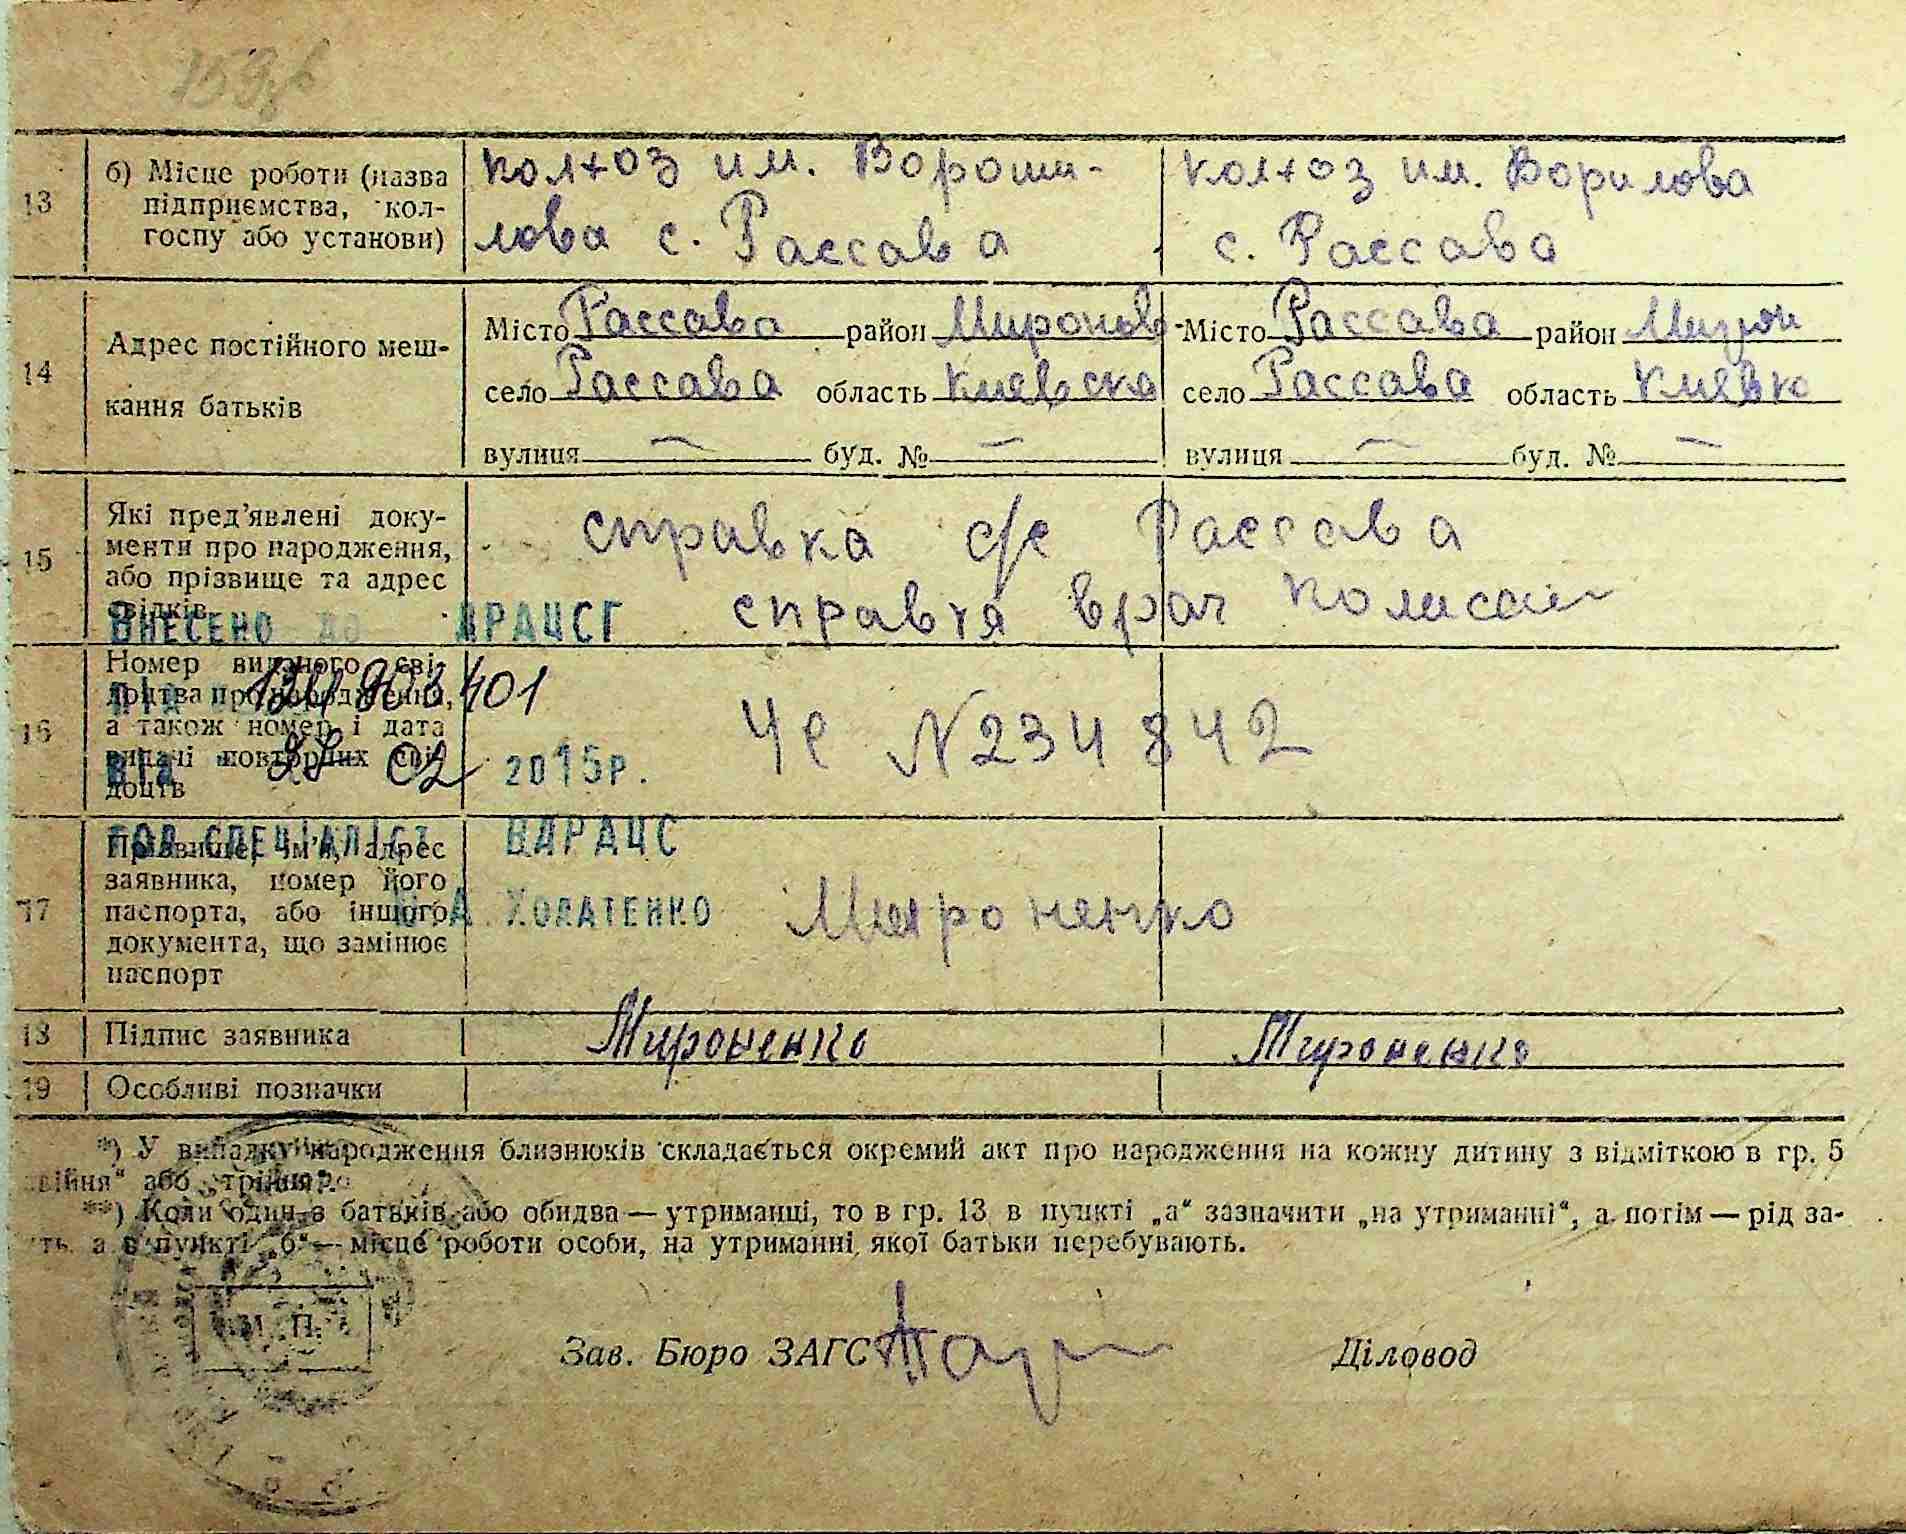 13 б) Місце роботи (назва підприємства, колгоспу або установи)
колхоз им. Вороши-
лова с. Рассава
колхоз им. Ворилова
с. Рассава
14 Адрес постійного меш-
кання батьків
Місто Рассава район Миронов
село Рассава область Киевска
вулиця — буд. № —
Місто Рассава район Мирон
село Рассава область Киевка
вулиця — буд. № —
15 Які пред'явлені доку-
менти про народження,
або прізвище та адрес
свідків
справка с/с Рассава
справка врач
ВНЕСЕНО ДО ДРАЦСГ
16 Номер виданого сві-
доцтва про народження,
а також номер і дата
видачі повторних сві-
доцтв
ЧС N 234842
ВІД 02 2015р.
ГОЛ.СПЕЦІАЛІСТ ВДРАЦС
17 Прізвище, ім'я, адрес
заявника, номер його
паспорта, або іншого
документа, що замінює
паспорт
Мироненко
18 Підпис заявника
Мироненко
Мироненко
19 Особливі позначки
*) У випадку народження близнюків складається окремий акт про народження на кожну дитину з відміткою в гр. 5
війня" або „трійня".
**) Коли один з батьків або обидва — утриманці, то в гр. 13 в пункті „а" зазначити „на утриманні", а потім — рід за-
ть, а в пункті „б" — місце роботи особи, на утриманні якої батьки перебувають.
М. П.
Зав. Бюро ЗАГС
Діловод